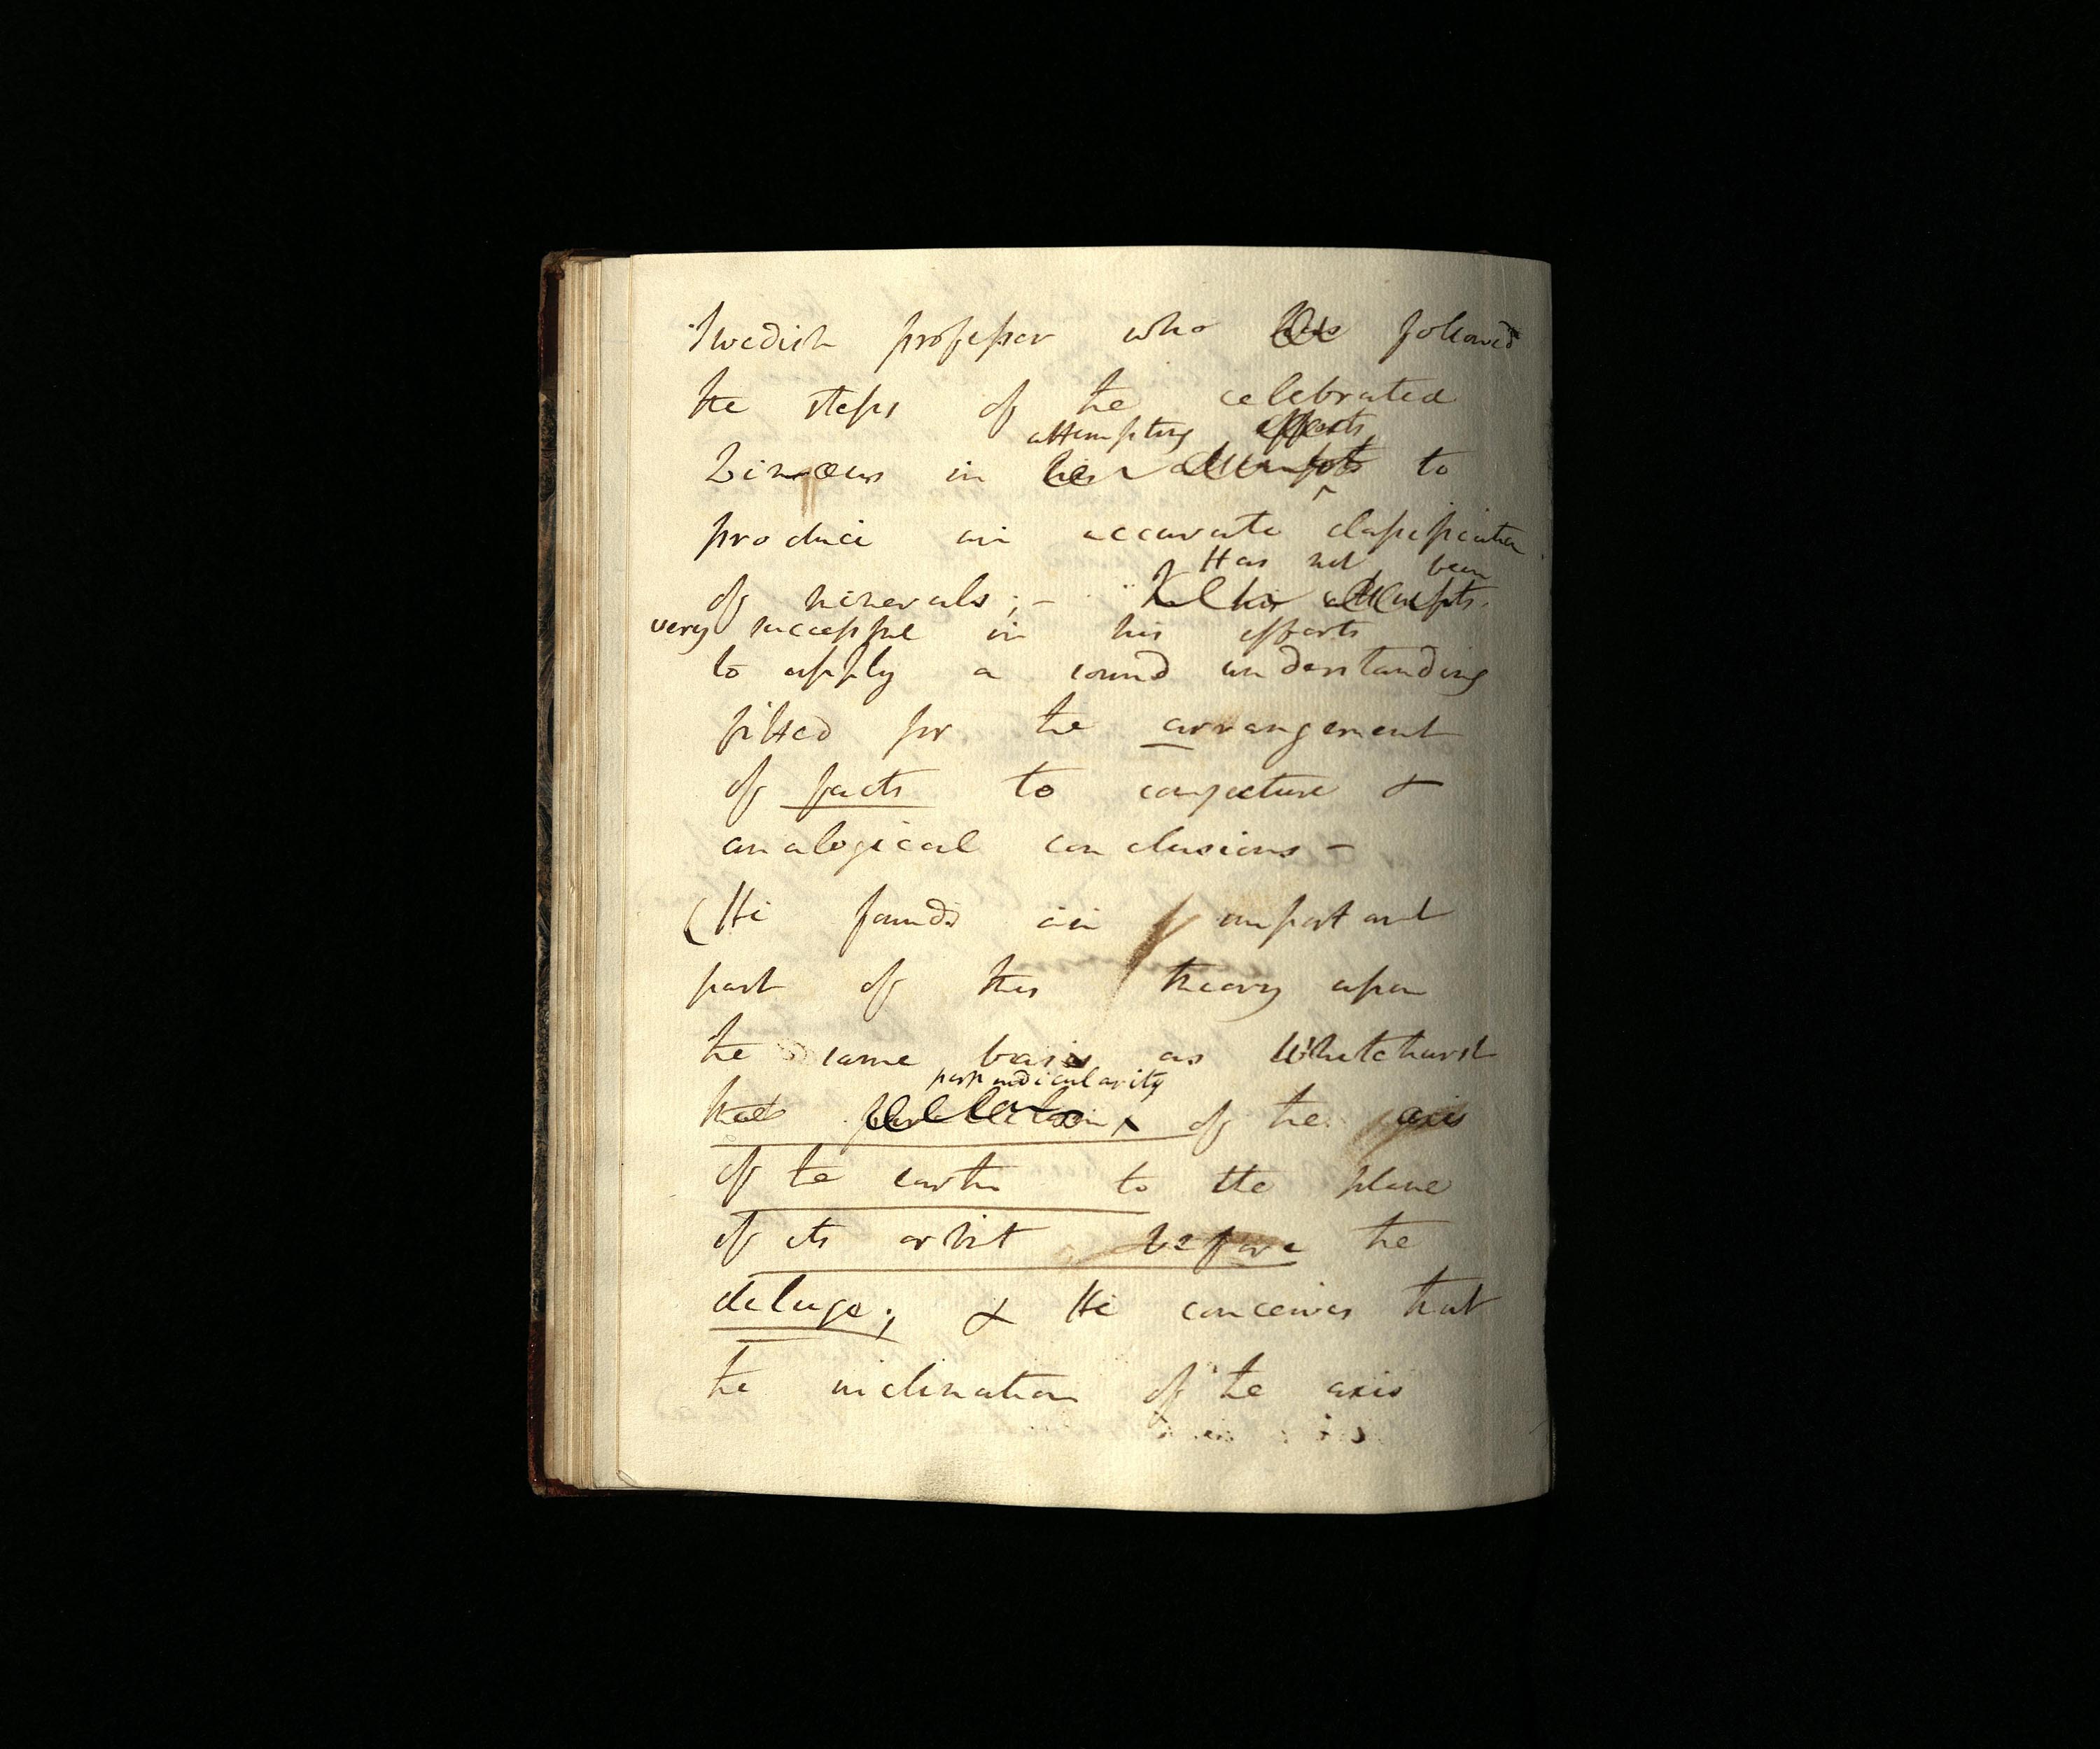 Swedish professor who has followed
the steps of the celebrated
attempting efforts
Linnæus in his attempts to
produce an accurate classification
& Has not been
of minerals; – in his attempts
very successful in his efforts
to apply a sound understanding
fitted for the arrangement
of facts to conjecture &
analogical conclusions –
(He founds an important
part of this theory upon
the same basis as Whitehurst
perpendicularity
that of the axis
of the earth to the plane
of its orbit before the
deluge; & He conceives that
the inclination of the axis